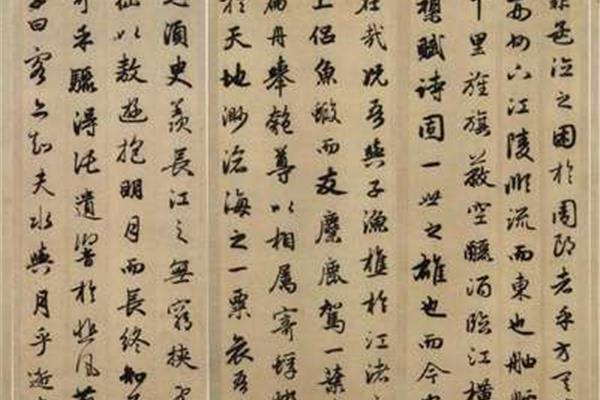 孟德之困於周郎者乎方其
荊州下江陵順流而東也舳艫
千里旌旗蔽空釃酒臨江橫
槊賦詩固一世之雄也而今安
在哉況吾與子漁樵於江渚
上侶魚蝦而友麋鹿駕一葉
扁舟舉匏尊以相屬寄蜉蝣
於天地渺滄海之一粟哀吾
之須臾羨長江之無窮挾飛
仙以遨遊抱明月而長終知
可乎驟得託遺響於悲風
子曰客亦知夫水與月乎逝